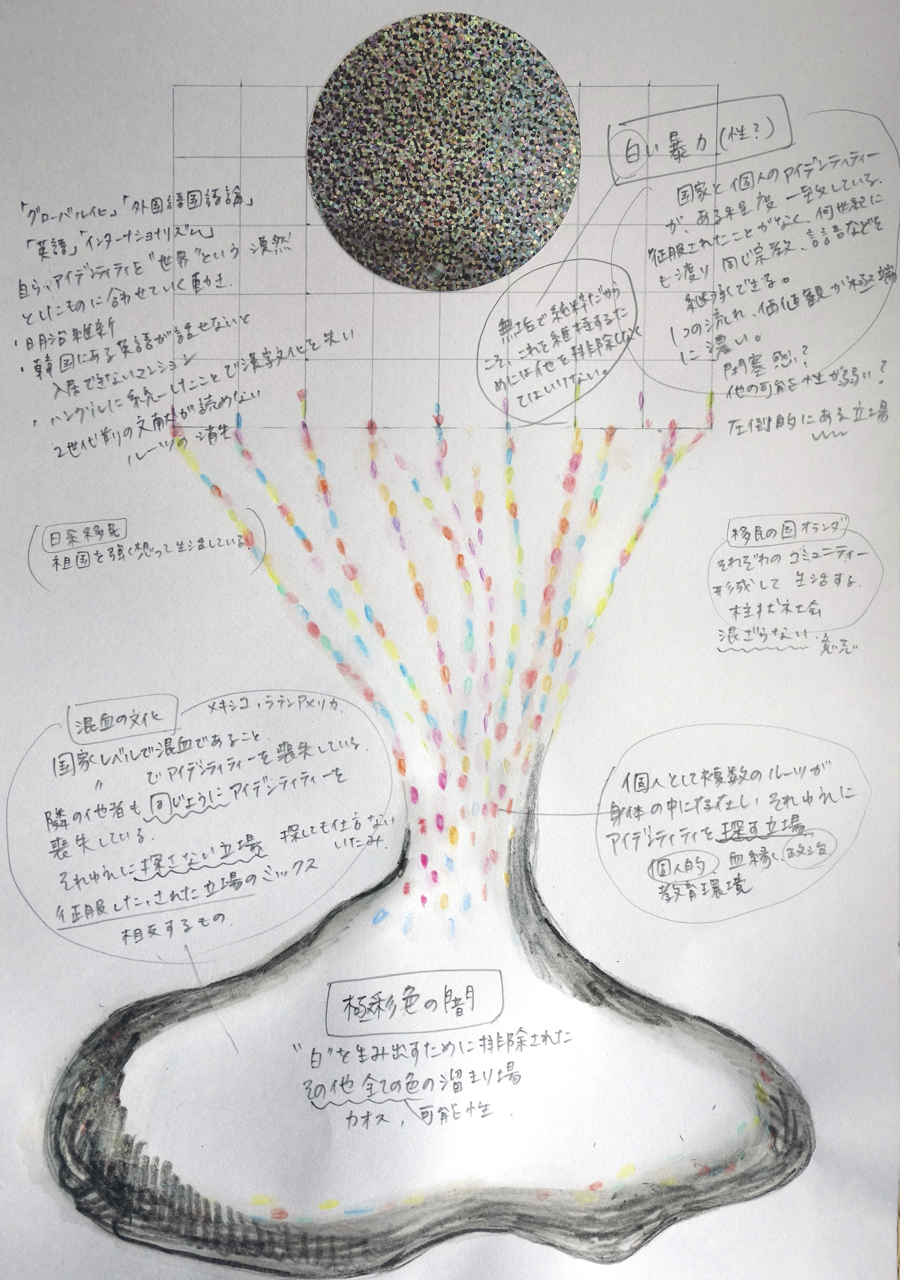 白い暴力(性?)
国家と個人のアイデンティティー
が、ある程度一致している。
征服されたことがなく、何世紀に
も渡り同じ宗教、言語などを
継承できる。
1つの流れ、価値観が極端
に濃い。
閉塞感?
他の可能性が弱い?
圧倒的にある立場
「グローバル化」「外国語国語論」
「英語」「インターナショナリズム」
自らアイデンティティを"世界"という漠然
としたものに合わせていく動き
・明治維新
・韓国にある英語が話せないと
入居できないマンション
・ハングルに統一したことで漢字文化を失い
2世代前の文献が読めない
ルーツの消失
無垢で純粋だから
こそ、これを維持するた
めには他を排除しなく
てはいけない。
日系移民
祖国を強く想って生活している
移民の国オランダ
それぞれのコミュニティー
形成して生活する。
柱状社会
混ざらない
混血の文化
メキシコ、ラテンアメリカ
国家レベルで混血であること。
〃でアイデンティティーを喪失している。
隣の他者も同じようにアイデンティティーを
喪失している。
それゆえに探さない立場
探しても仕方ない
いたみ
征服した、された立場のミックス
相反するもの
個人として複数のルーツが
身体の中に存在し、それゆえに
アイデンティティを探す立場
個人的、血縁、政治
教育環境
極彩色の闇
"白"を生み出すために排除された
その他全ての色の溜まり場
カオス、可能性